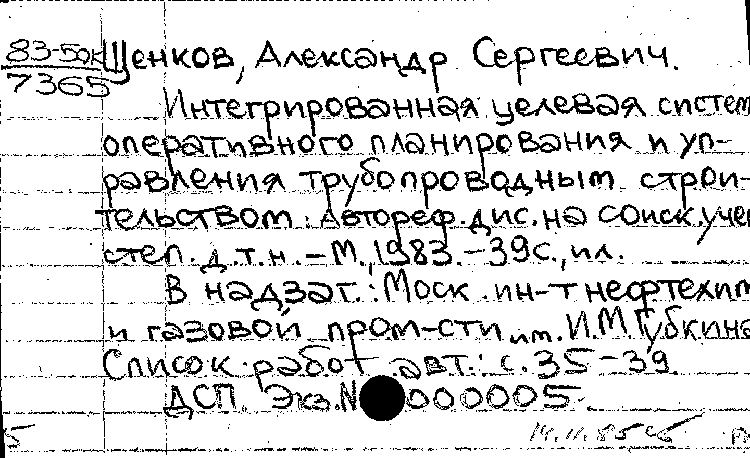 83-50к Щенков, Александр Сергеевич.
7365
Интегрированная целевая систем
оперативного планирования и уп-
равления трубопроводным строи-
тельством: Автореф. дис. на соиск. учен
степ. д.т.н. - М., 1983. - 39с., ил.
В надзаг.: Моск. ин-т нефтехим
и газовой пром-сти им. И.М. Губкина
Список работ авт.: с. 35-39.
ДСП. Экз. N 000005.
14.11.85